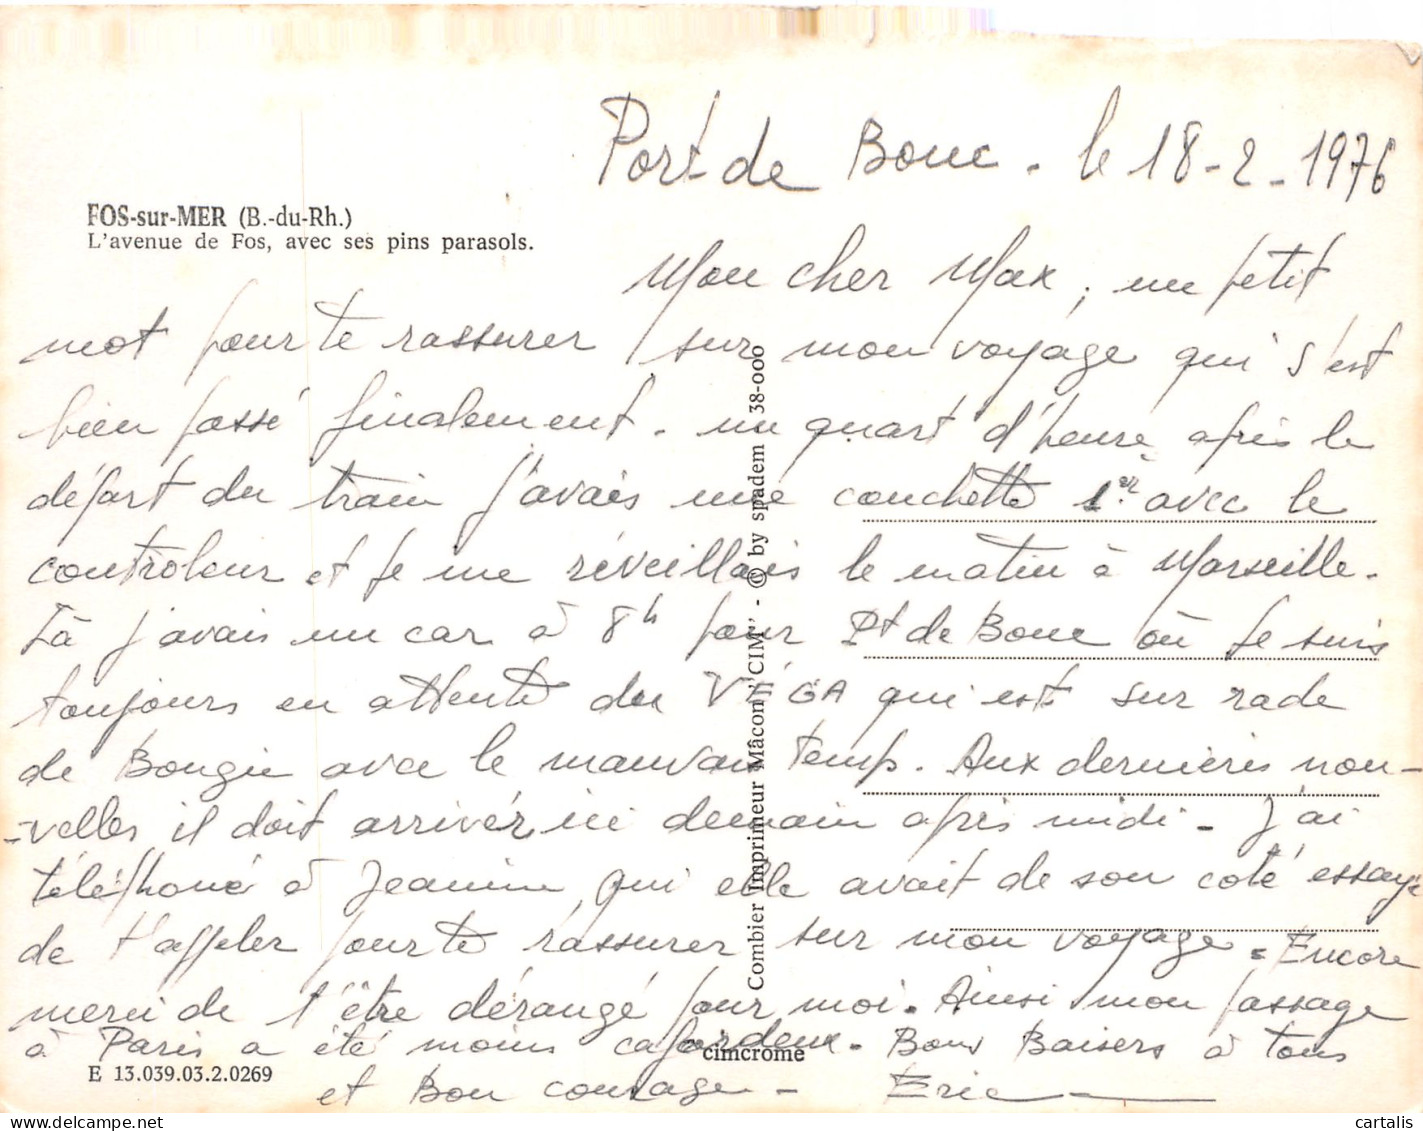 Port de Bouc - le 18-2-1976
FOS-sur-MER (B.-du-Rh.)
L'avenue de Fos, avec ses pins parasols.
Mon cher Max, un petit
mot pour te rassurer sur mon voyage qui s'est
bien passé finalement. un quart d'heure après le
départ du train j'avais une couchette 1er avec le
controleur et je me réveillais le matin à Marseille.
Là j'avais un car à 8h pour Pt de Bouc où je suis
toujours en attente du VÉGA qui est sur rade
de Bougie avec le mauvais temps. Aux dernieres nou-
-velles il doit arriver ici demain après midi - J'ai
téléphoné à Jeanine, qui elle avait de son coté essayé
de t'appeler pour te rassurer sur mon voyage - Encore
merci de t'être dérangé pour moi. Ainsi mon passage
à Paris a été moins cafardeux. Bons Baisers à tous
et Bon courage - Eric
Combier Imprimeur Mâcon "CIM" - © by spadem 38-000
cimcrome
E 13.039.03.2.0269
cartalis